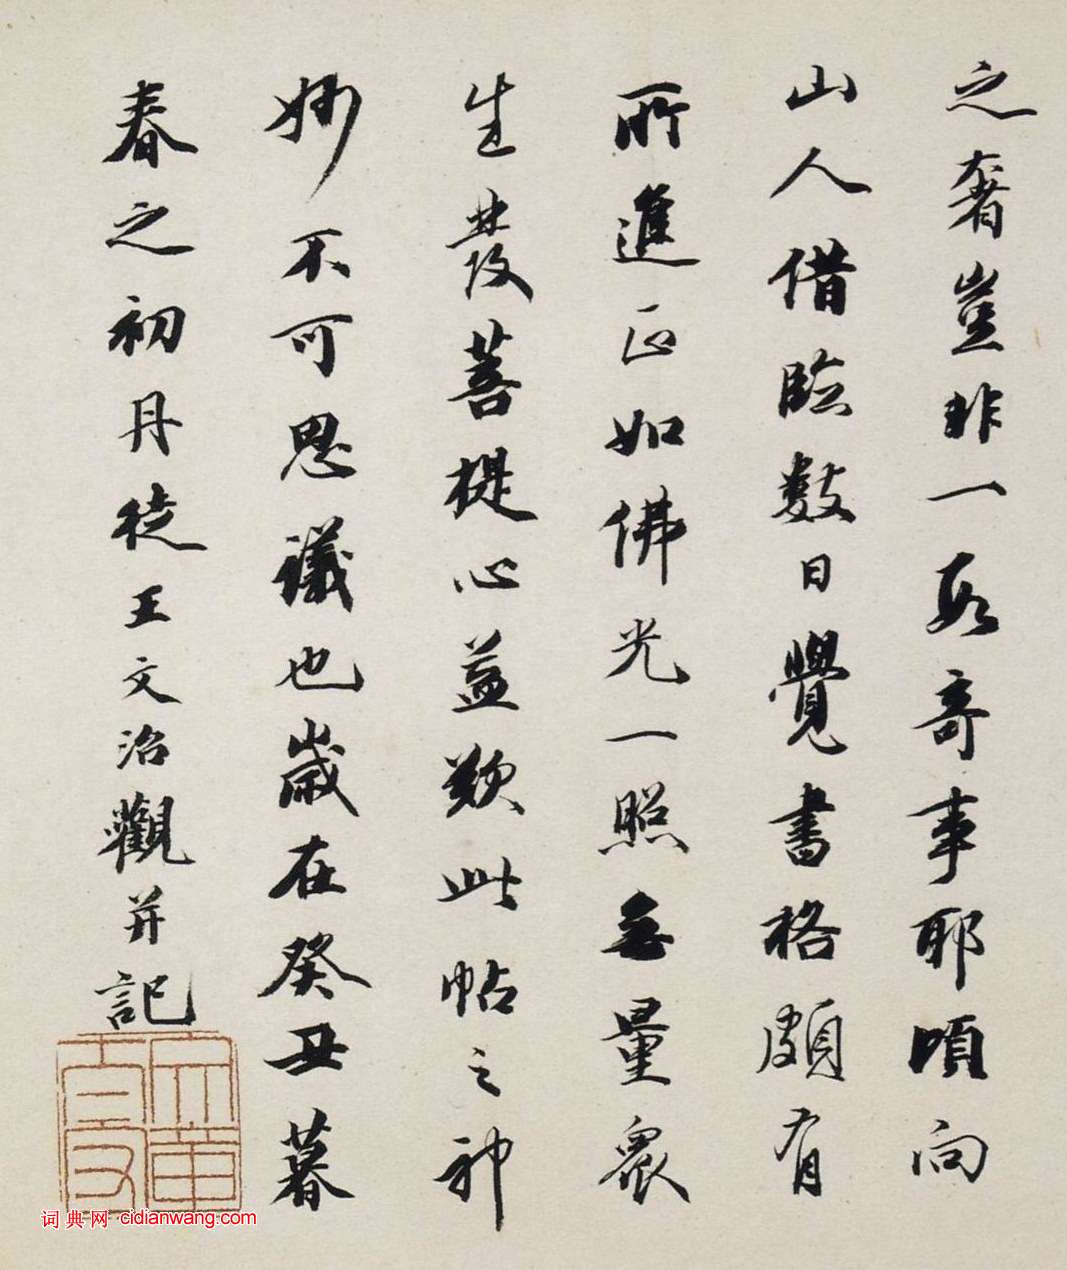 之奢豈非一段奇事耶頃向
山人借臨數日覺書格頗有
所進正如佛光一照無量眾
生發菩提心益歎此帖之神
妙不可思議也歲在癸丑暮
春之初丹徒王文治觀并記
文章太守
词典网 cidianwang.com